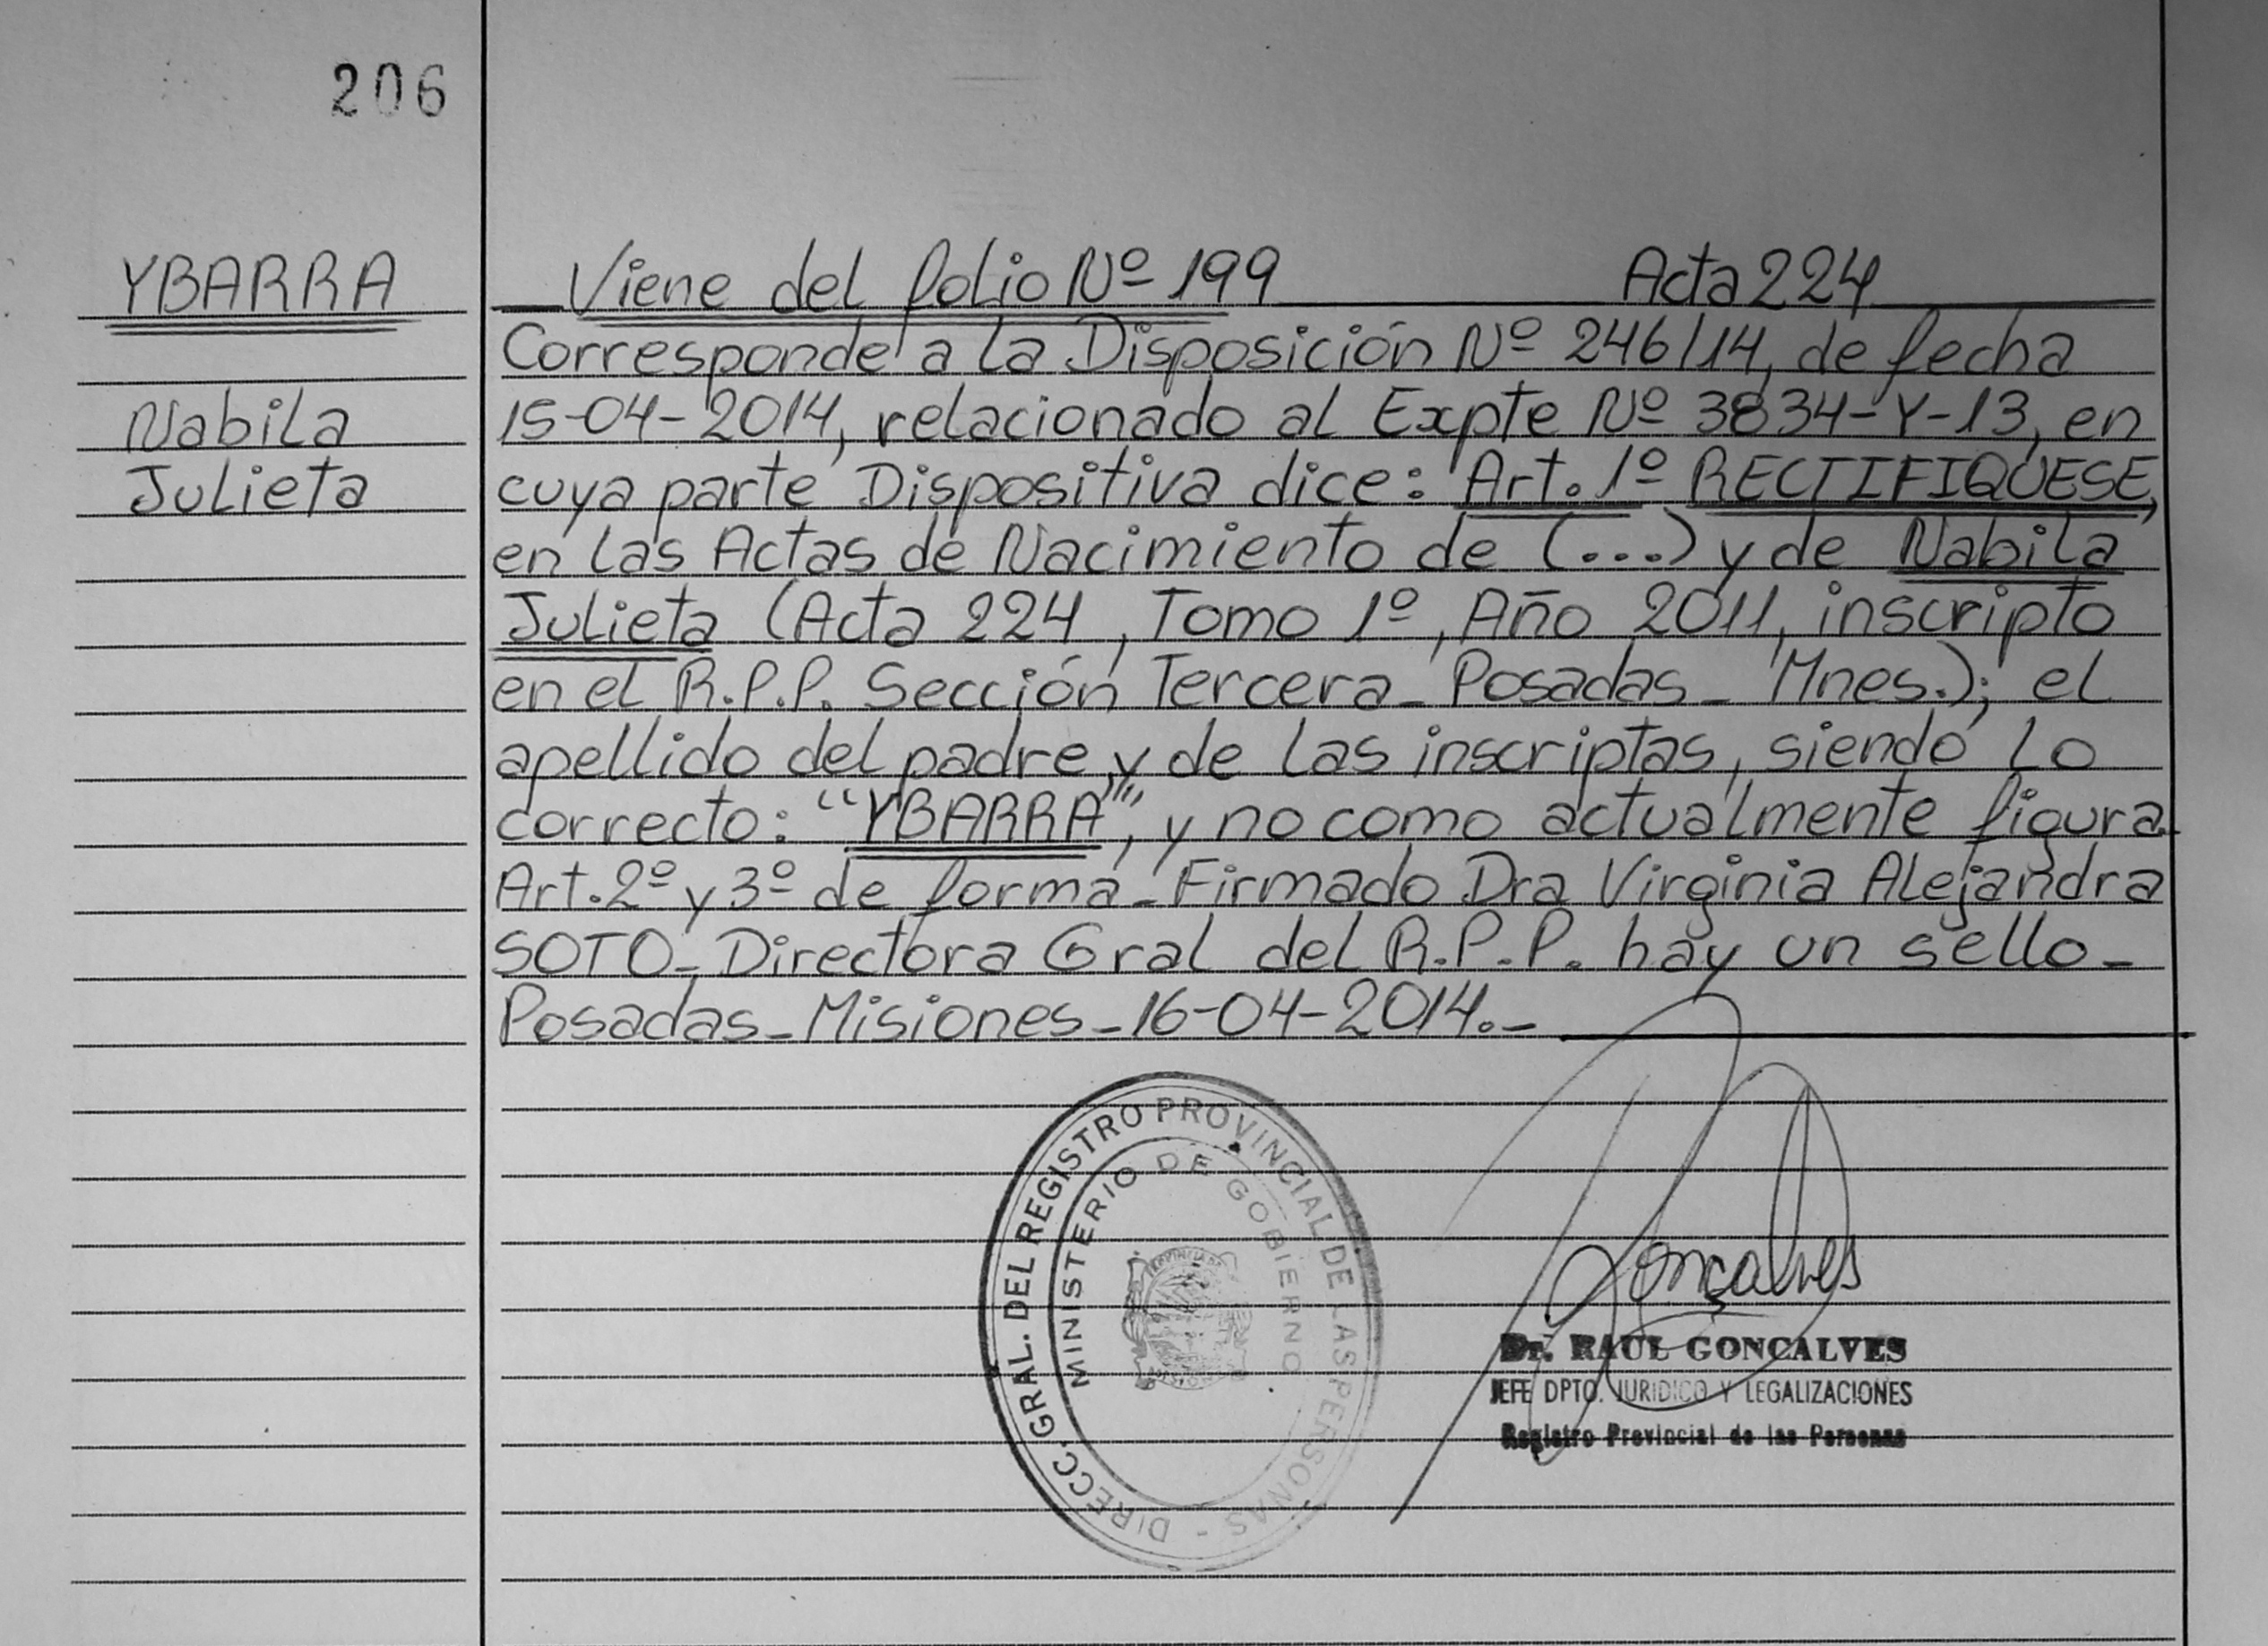 206
YBARRA
Nabila
Julieta
Viene del folio Nº 199 Acta 224
Corresponde a la Disposición Nº 246/14, de fecha
15-04-2014, relacionado al Expte Nº 3834-Y-13, en
cuya parte Dispositiva dice: Art. 1º RECTIFIQUESE,
en las Actas de Nacimiento de (...) y de Nabila
Julieta (Acta 224, Tomo 1º, Año 2011, inscripto
en el R.P.P. Sección Tercera_ Posadas_ Mnes.); el
apellido del padre y de las inscriptas, siendo lo
correcto: "YBARRA", y no como actualmente figura.
Art. 2º y 3º de forma_ Firmado Dra Virginia Alejandra
SOTO_ Directora Gral del R.P.P. hay un sello_
Posadas_Misiones_16-04-2014._
DIRECC. GRAL. DEL REGISTRO PROVINCIAL DE LAS PERSONAS -
MINISTERIO DE GOBIERNO
Gonçalves
Dr. RAUL GONCALVES
JEFE DPTO. JURIDICO Y LEGALIZACIONES
Registro Provincial de las Personas